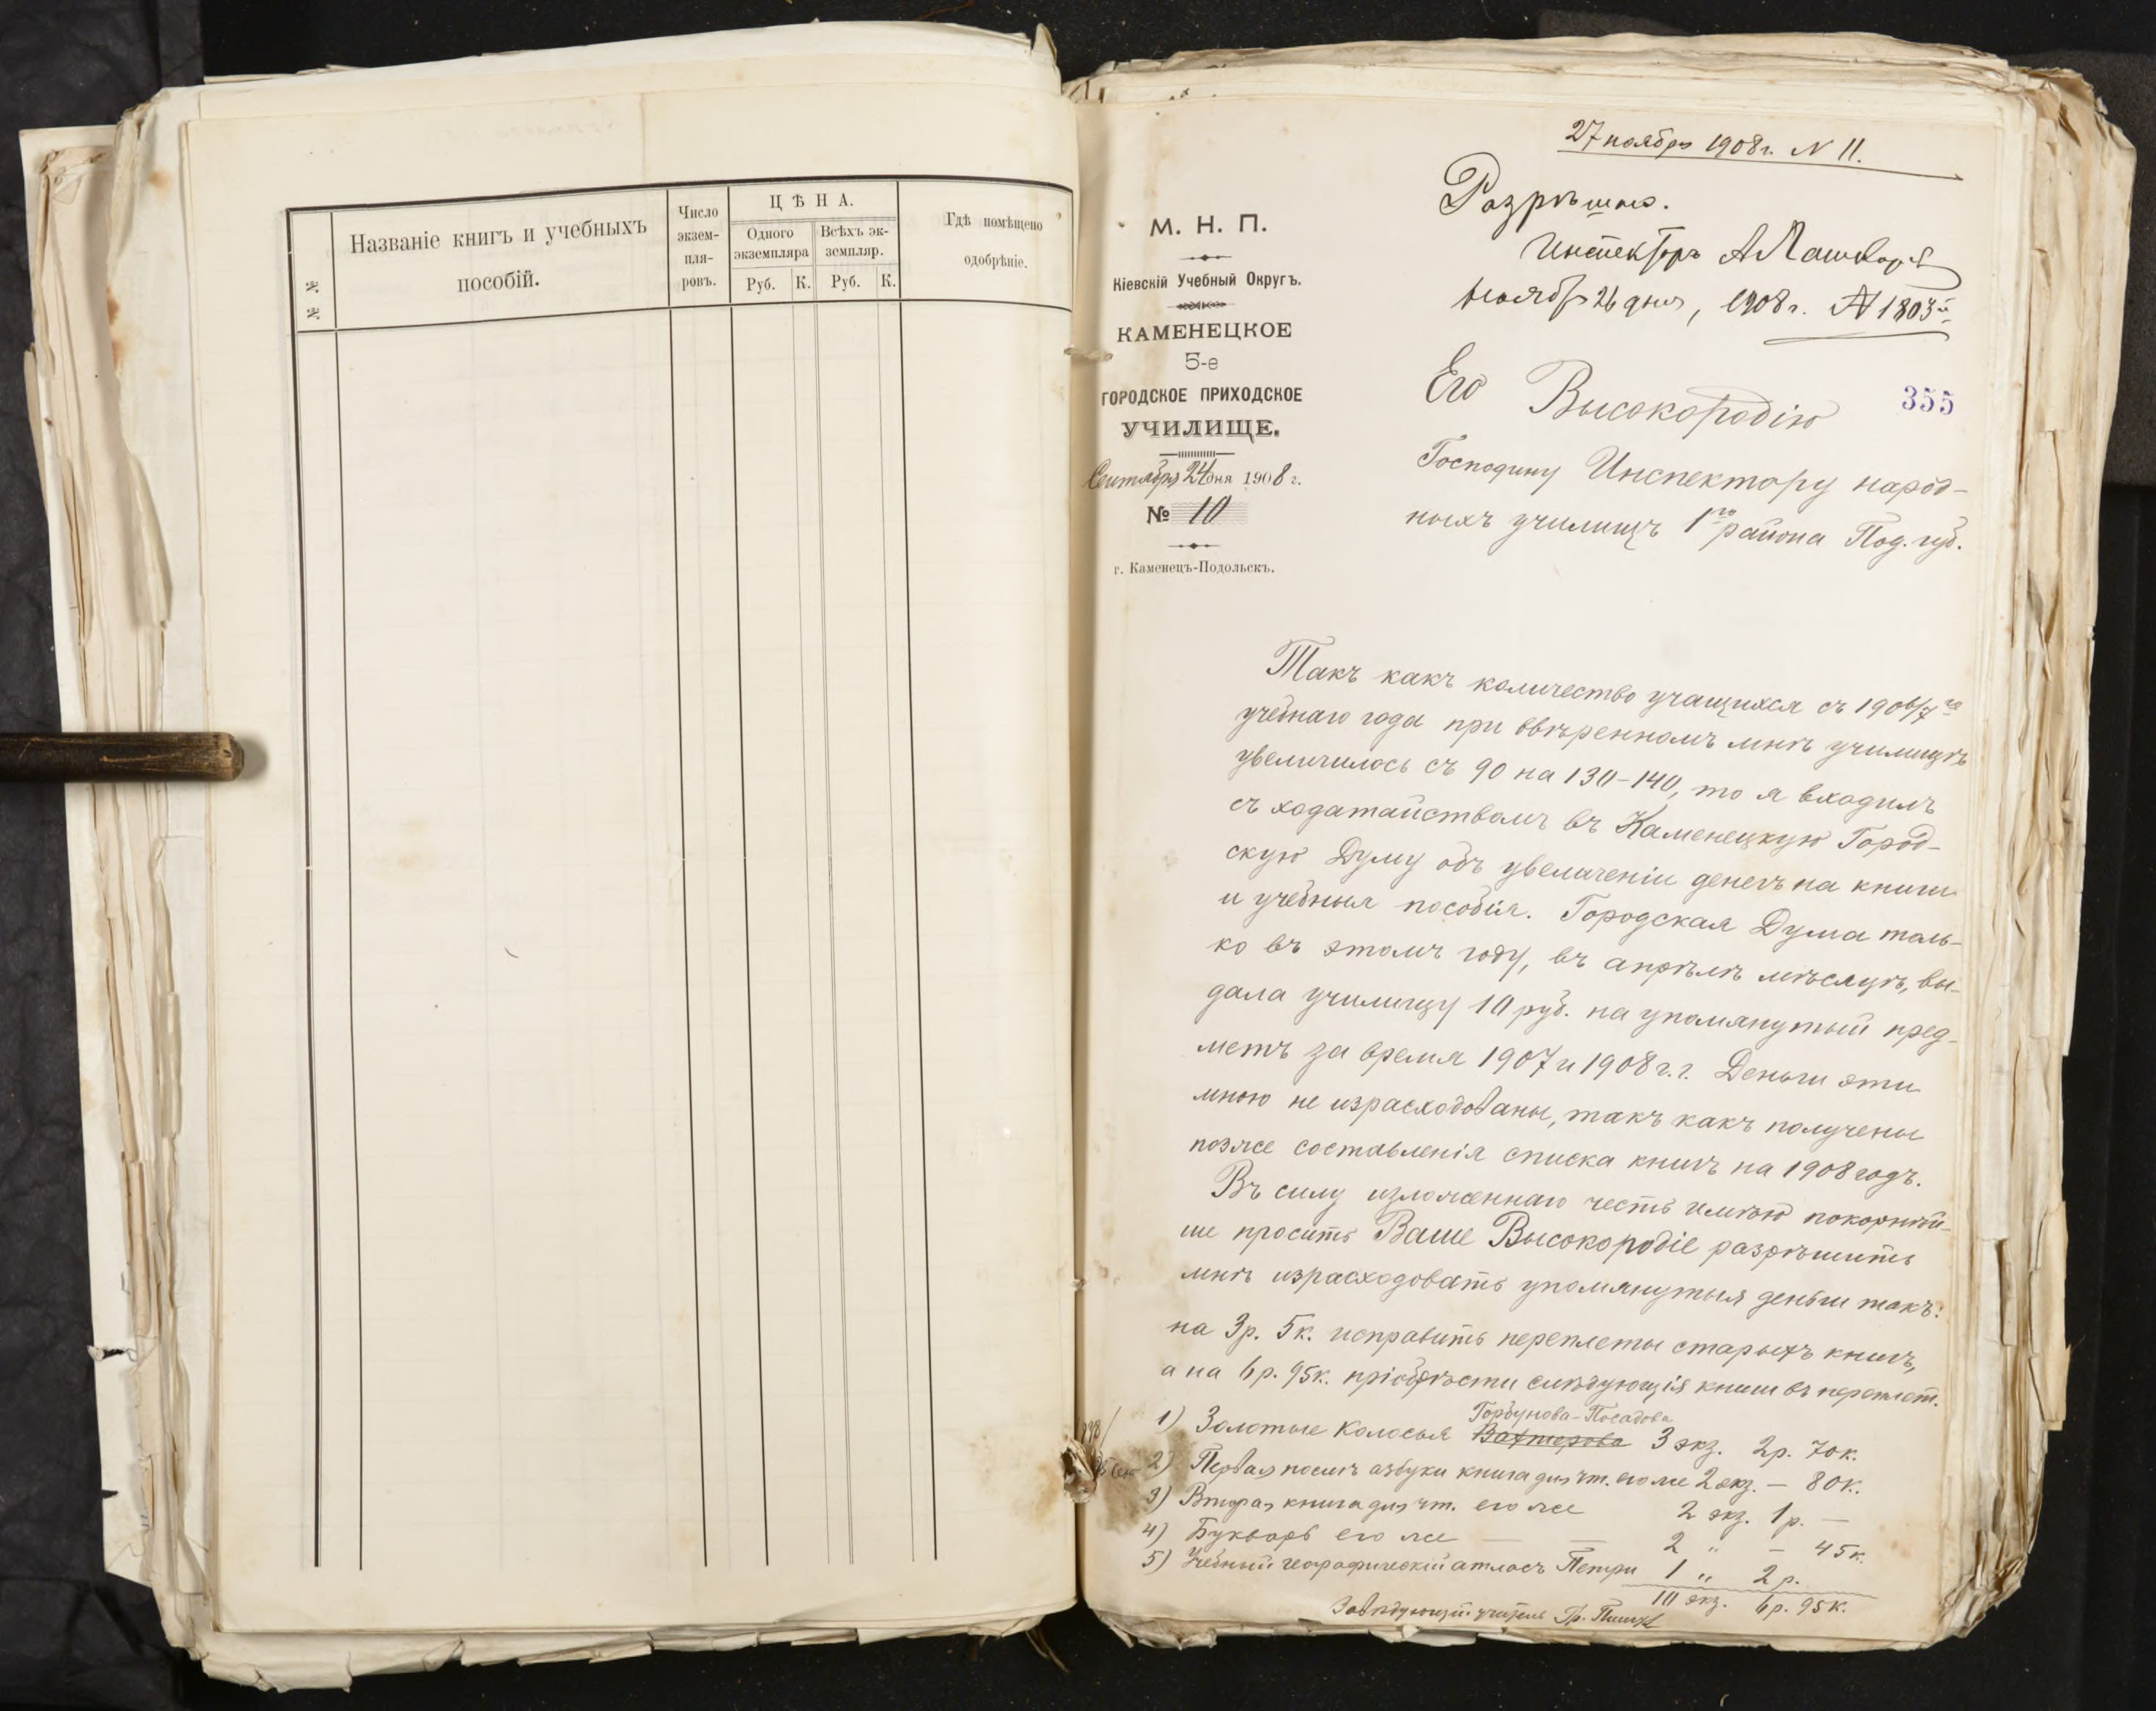 № №
Названіе книгъ и учебныхъ
пособій.
Число
экзем-
пля-
ровъ.
ЦѢНА.
Одного
экземпляра
Всѣхъ эк-
земпляр.
Руб. К. Руб. К.
Гдѣ помѣщено
одобрѣніе.
27 ноября 1908 г. N 11.
Разрѣшаю.
Инспекторъ
Ноябр 26 дня, 1908 г. № 1803
М. Н. П.
Кіевскій Учебный Округъ.
КАМЕНЕЦКОЕ
5-е
ГОРОДСКОЕ ПРИХОДСКОЕ
УЧИЛИЩЕ.
Сентября 24 дня 1908 г.
№ 10
г. Каменецъ-Подольскъ.
355
Его Высокородію
Господину Инспектору народ-
ныхъ училищъ 1го района Под. губ.
Такъ какъ количество учащихся съ 1906/7 го
учебнаго года при ввѣренномъ мнѣ училищѣ
увеличилось съ 90 на 130-140, то я входилъ
съ ходатайствомъ въ Каменецкую Город-
скую Думу объ увеличеніи денегъ на книги
и учебныя пособія. Городская Дума толь-
ко въ этомъ году, въ апрѣлѣ мѣсяцѣ, вы-
дала училищу 10 руб. на упомянутый пред-
метъ за время 1907 и 1908 г.г. Деньги эти
мною не израсходованы, такъ какъ получены
позже составленія списка книгъ на 1908 годъ.
Въ силу изложеннаго честь имѣю покорнѣй-
ше просить Ваше Высокородіе разрѣшить
мнѣ израсходовать упомянутыя деньги такъ:
на 3 р. 5 к. исправить переплеты старыхъ книгъ,
а на 6 р. 95 к. пріобрѣсти слѣдующія книги въ переплет.
Горбунова-Посадова
1) Золотые Колосья Вахтерова 3 экз. 2 р. 70 к.
2) Первая послѣ азбуки книга для чт. его же 2 экз. — 80 к.
3) Вторая книга для чт. его же 2 экз. 1 р. —
4) Букварь его же — — 2 " — 45 к.
5) Учебный географическій атласъ Петри 1 " 2 р.
10 экз. 6 р. 95 к.
Завѣдующій учитель Гр.